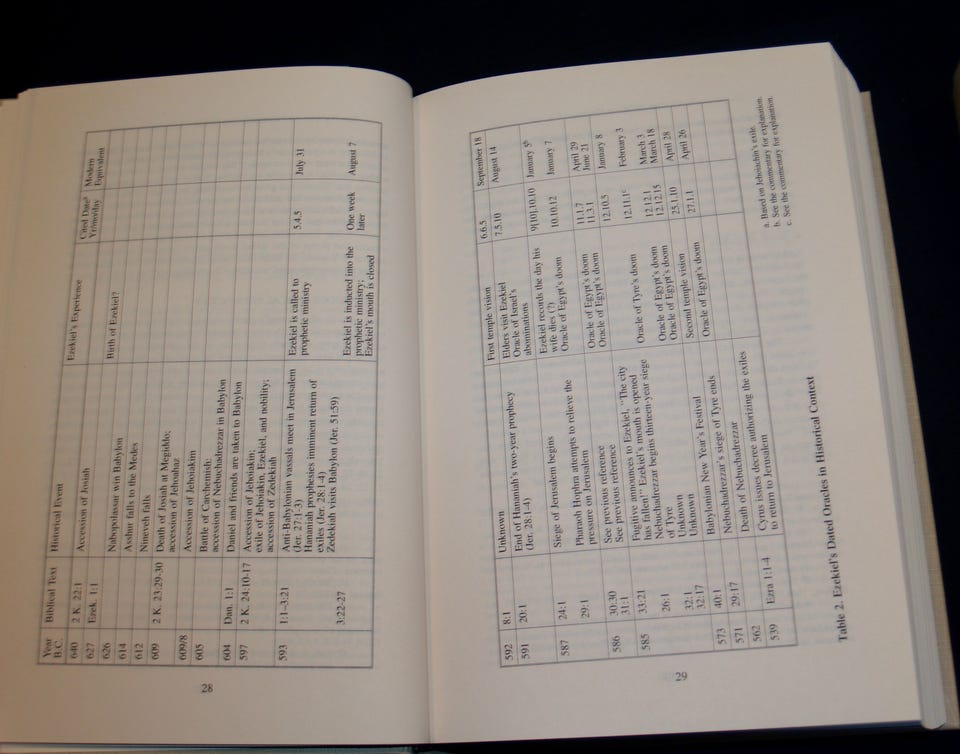 Year B.C. Biblical Text Historical Event Ezekiel's Experience Cited Date^a Yr/mo/day Modern Equivalent
640 2 K. 22:1 Accession of Josiah
627 Ezek. 1:1 Birth of Ezekiel?
626 Nabopolassar win Babylon
614 Asshur falls to the Medes
612 Nineveh falls
609 2 K. 23:29-30 Death of Josiah at Megiddo;
accession of Jehoahaz
609/8 Accession of Jehoiakim
605 Battle of Carchemish;
604 Dan. 1:1 Daniel and friends are taken to Babylon
597 2 K. 24:10-17 Accession of Jehoiakin;
exile of Jehoiakin, Ezekiel, and nobility;
accession of Zedekiah
593 1:1–3:21 Anti-Babylonian vassals meet in Jerusalem Ezekiel is called to 5.4.5 July 31
(Jer. 27:1-3) prophetic ministry
Hananiah prophesies imminent return of
exiles (Jer. 28:1-4)
3:22-27 Zedekiah visits Babylon (Jer. 51:59) Ezekiel is inducted into the One week August 7
prophetic ministry; later
Ezekiel's mouth is closed
28
592 8:1 Unknown First temple vision 6.6.5 September 18
591 20:1 End of Hananiah's two-year prophecy Elders visit Ezekiel 7.5.10 August 14
(Jer. 28:1-4) Oracle of Israel's
abominations
587 24:1 Siege of Jerusalem begins Ezekiel records the day his 9[10].10.10 January 5^b
wife dies (?)
29:1 Pharaoh Hophra attempts to relieve the Oracle of Egypt's doom 10.10.12 January 7
pressure on Jerusalem
586 30:30 See previous reference Oracle of Egypt's doom 11.1.7 April 29
31:1 See previous reference Oracle of Egypt's doom 11.3.1 June 21
585 33:21 Fugitive announces to Ezekiel, "The city 12.10.5 January 8
has fallen!" Ezekiel's mouth is opened
26:1 Nebuchadrezzar begins thirteen-year siege Oracle of Tyre's doom 12.11.1^c February 3
of Tyre
32:1 Unknown Oracle of Egypt's doom 12.12.1 March 3
32:17 Unknown Oracle of Egypt's doom 12.12.15 March 18
573 40:1 Babylonian New Year's Festival Second temple vision 25.1.10 April 28
571 29:17 Nebuchadrezzar's siege of Tyre ends Oracle of Egypt's doom 27.1.1 April 26
562 Death of Nebuchadrezzar
539 Ezra 1:1-4 Cyrus issues decree authorizing the exiles
to return to Jerusalem
a. Based on Jehoiachin's exile.
b. See the commentary for explanation.
c. See the commentary for explanation.
Table 2. Ezekiel's Dated Oracles in Historical Context
29